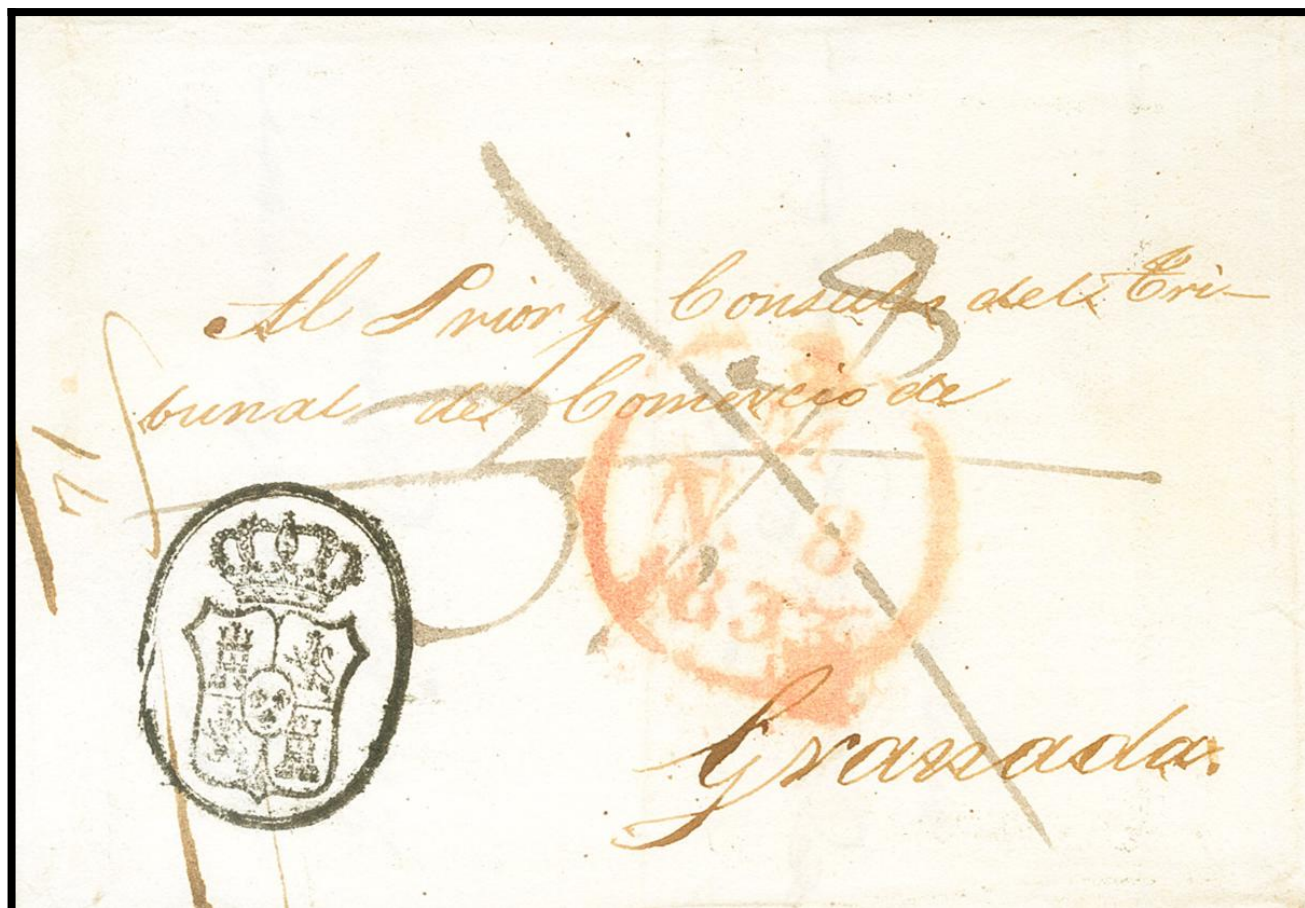 Al Prior y Consules del Tri-
bunal de Comercio de
N. 8
Granada.